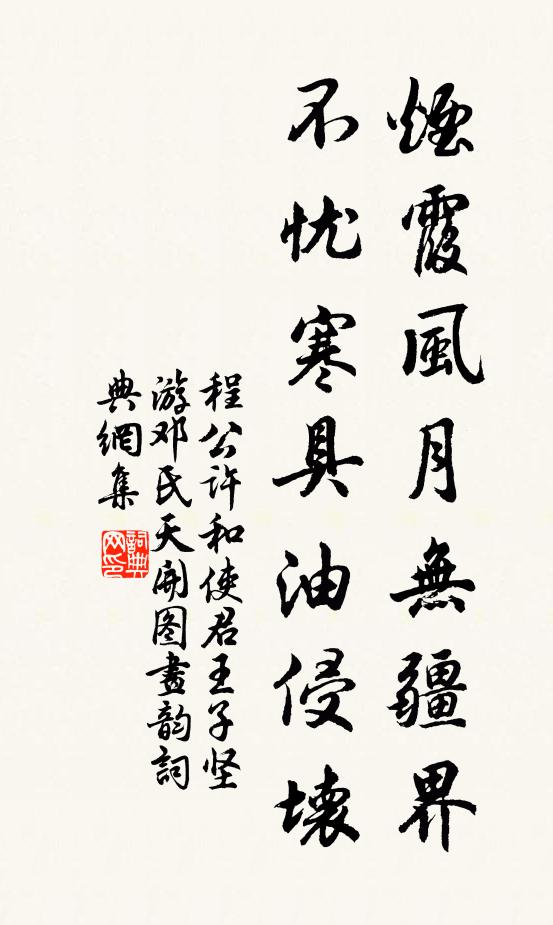 煙霞風月無疆界
不忧寒具油侵壊
程公许和使君王子坚
游邓氏天开图畫韵詞
典網集
詞典网印